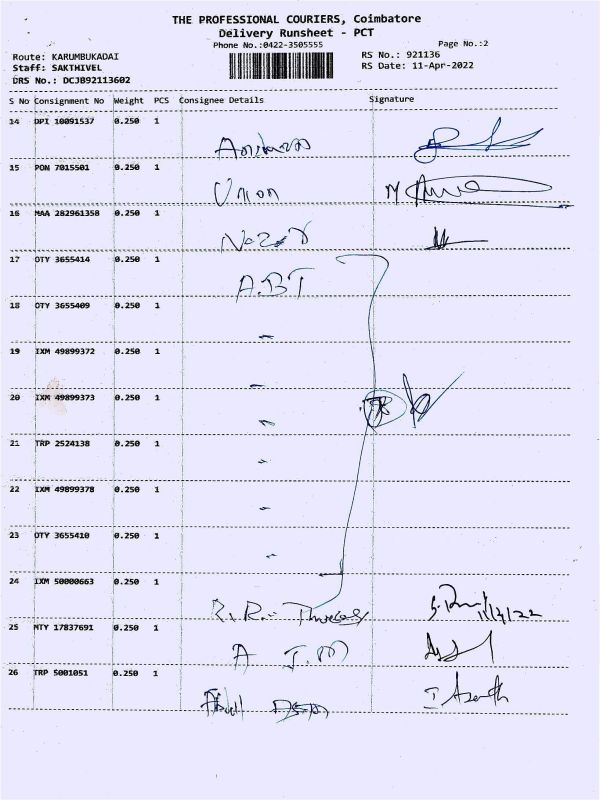 THE PROFESSIONAL COURIERS, Coimbatore
Delivery Runsheet - PCT
Phone No.:0422-3505555
Page No.:2
Route: KARUMBUKADAI
RS No.: 921136
Staff: SAKTHIVEL
RS Date: 11-Apr-2022
DRS No.: DCJB92113602
S No Consignment No Weight PCS Consignee Details Signature
14 DPI 10091537 0.250 1
15 PON 7015501 0.250 1
Union
16 MAA 282961358 0.250 1
17 OTY 3655414 0.250 1
A.B.T
18 OTY 3655409 0.250 1
19 IXM 49899372 0.250 1
20 IXM 49899373 0.250 1
21 TRP 2524138 0.250 1
22 IXM 49899378 0.250 1
23 OTY 3655410 0.250 1
24 IXM 50000663 0.250 1
25 MTY 17837691 0.250 1
A J.M
26 TRP 5001051 0.250 1